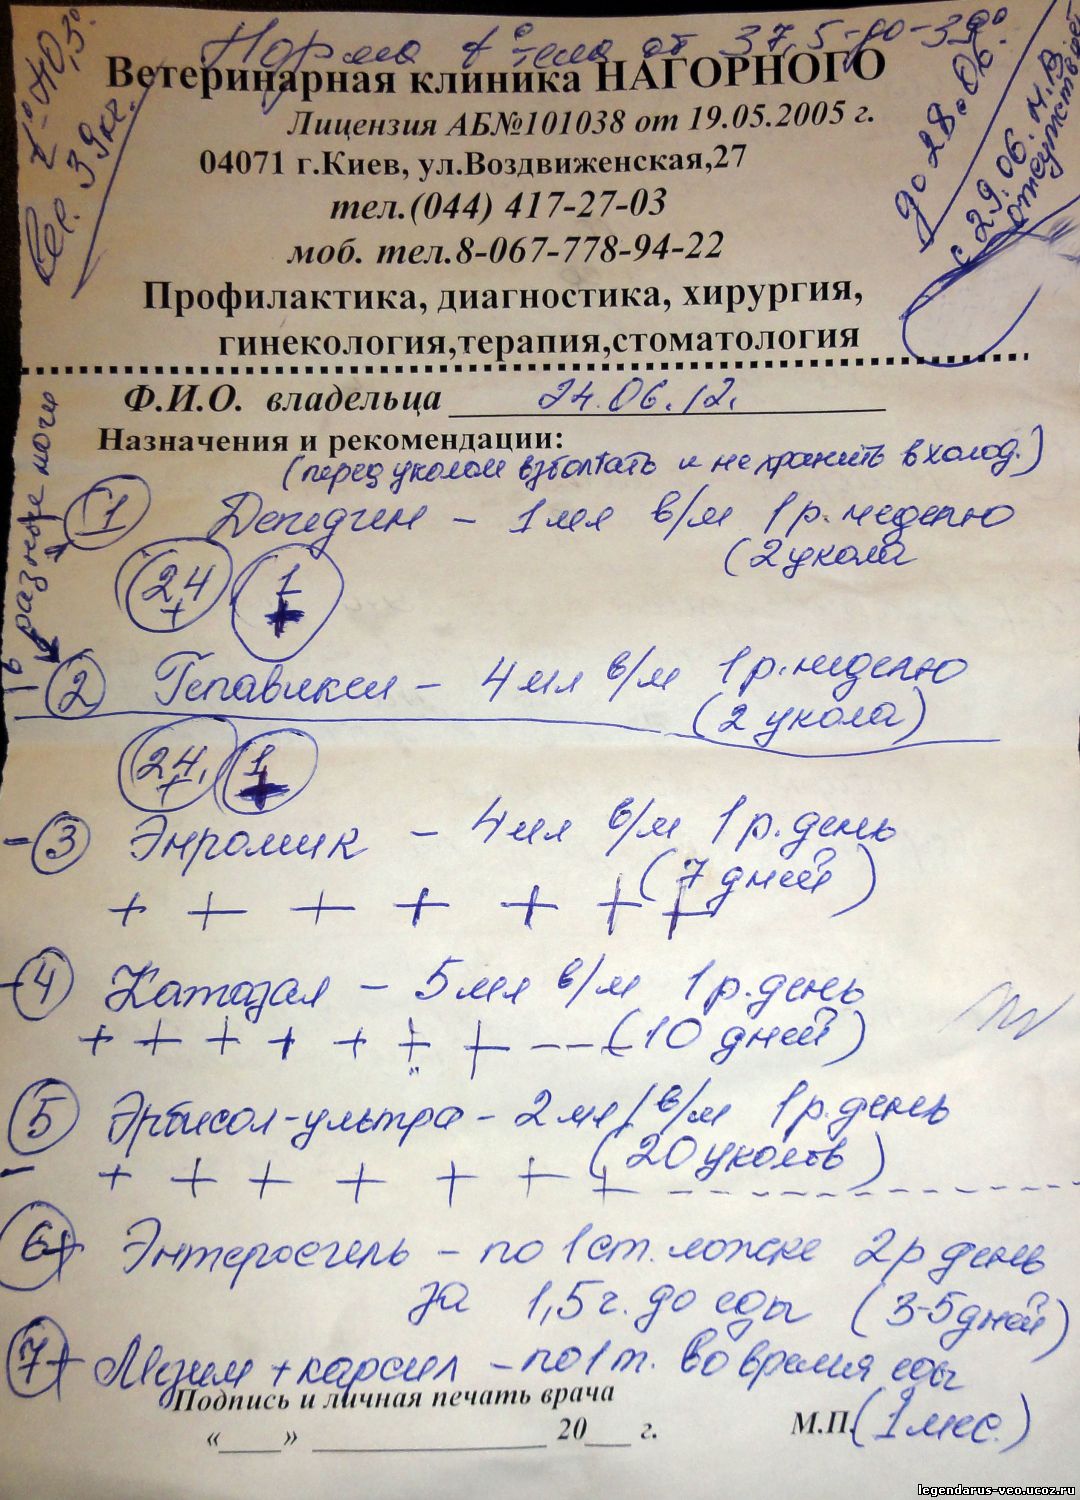 t°-40,5°
Вес. 39кг.
Норма t° тела от 37,5-до-39°
до 28.06.
с 29.06. М.В.
отсутствует
Ветеринарная клиника НАГОРНОГО
Лицензия АБ№101038 от 19.05.2005 г.
04071 г.Киев, ул.Воздвиженская,27
тел.(044) 417-27-03
моб. тел.8-067-778-94-22
Профилактика, диагностика, хирургия,
гинекология,терапия,стоматология
Ф.И.О. владельца 24.06.12.
Назначения и рекомендации:
(перед уколом взболтать и не хранить в холод.)
в разные ноги
1 Депедгин - 1мл в/м 1р. неделю
(2 укола
24 + 1 +
2 Гепавикел - 4мл в/м 1р. неделю
(2 укола)
24. + 1 +
- 3 Энромик - 4мл в/м 1р. день
+ + + + + + + (7 дней)
- 4 Катозал - 5мл в/м 1р. день
+ + + + + + + - - - (10 дней)
5 Эрбисол-ультра - 2мл/в/м 1р. день
- + + + + + + + (20 уколов)
6+ Энтеросгель - по 1ст. ложке 2р день
за 1,5ч. до еды (3-5дней)
7+ Мезим + карсил - по 1т. во время еды
Подпись и личная печать врача
«____» ________________ 20___ г. М.П. (1 мес.)
legendarus-veo.ucoz.ru